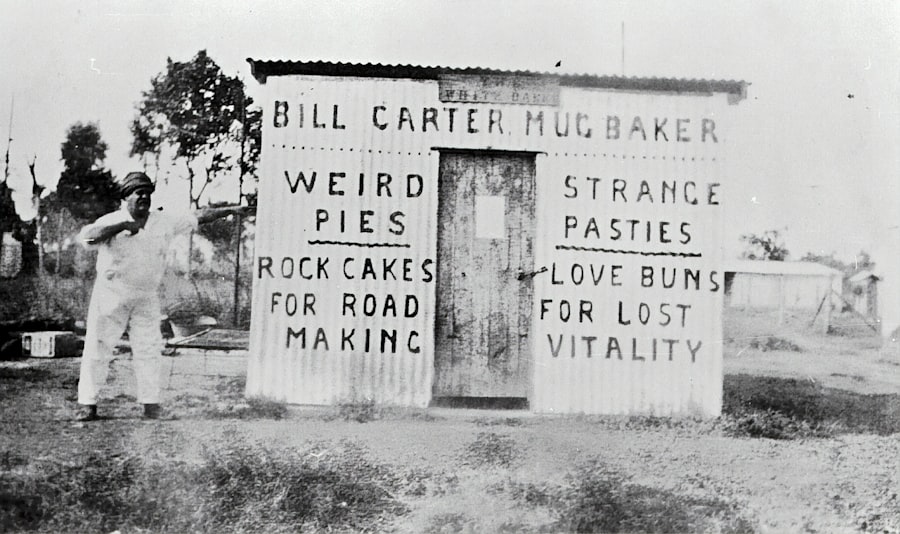 WHITE
BILL CARTER. MUG BAKER
WEIRD
PIES
ROCK CAKES
FOR ROAD
MAKING
STRANGE
PASTIES
LOVE BUNS
FOR LOST
VITALITY